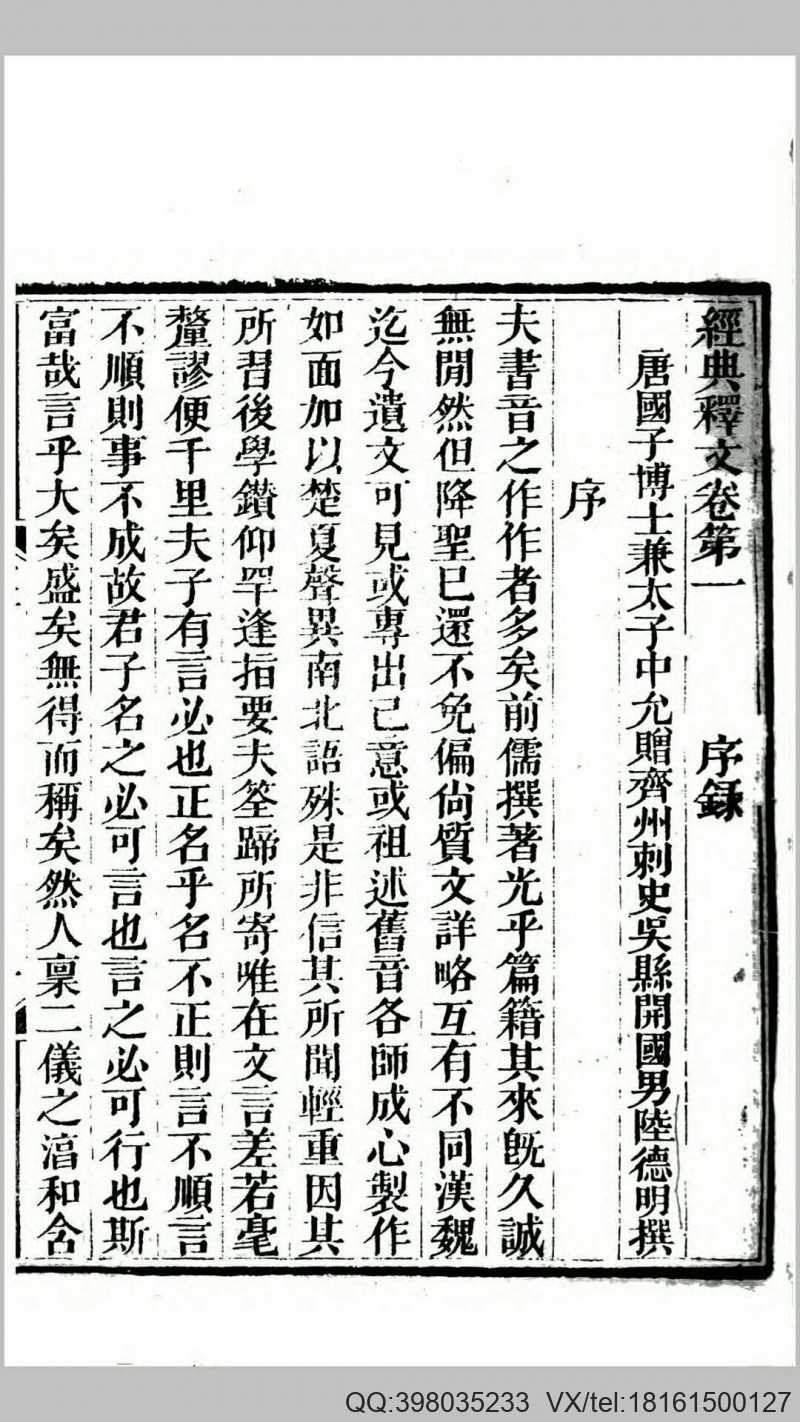 經典釋文卷第一　序録
唐國子博士兼太子中允贈齊州刺史吳縣開國男陸德明撰
序
夫書音之作作者多矣前儒撰著光乎篇籍其來旣久誠
無閒然但降聖已還不免偏尙質文詳略互有不同漢魏
迄今遺文可見或專出己意或祖述舊音各師成心製作
如面加以楚夏聲異南北語殊是非信其所聞輕重因其
所習後學鑚仰罕逢指要夫筌蹄所寄唯在文言差若毫
釐謬便千里夫子有言必也正名乎名不正則言不順言
不順則事不成故君子名之必可言也言之必可行也斯
富哉言乎大矣盛矣無得而稱矣然人稟二儀之湻和含
QQ:398035233 VX/tel:18161500127